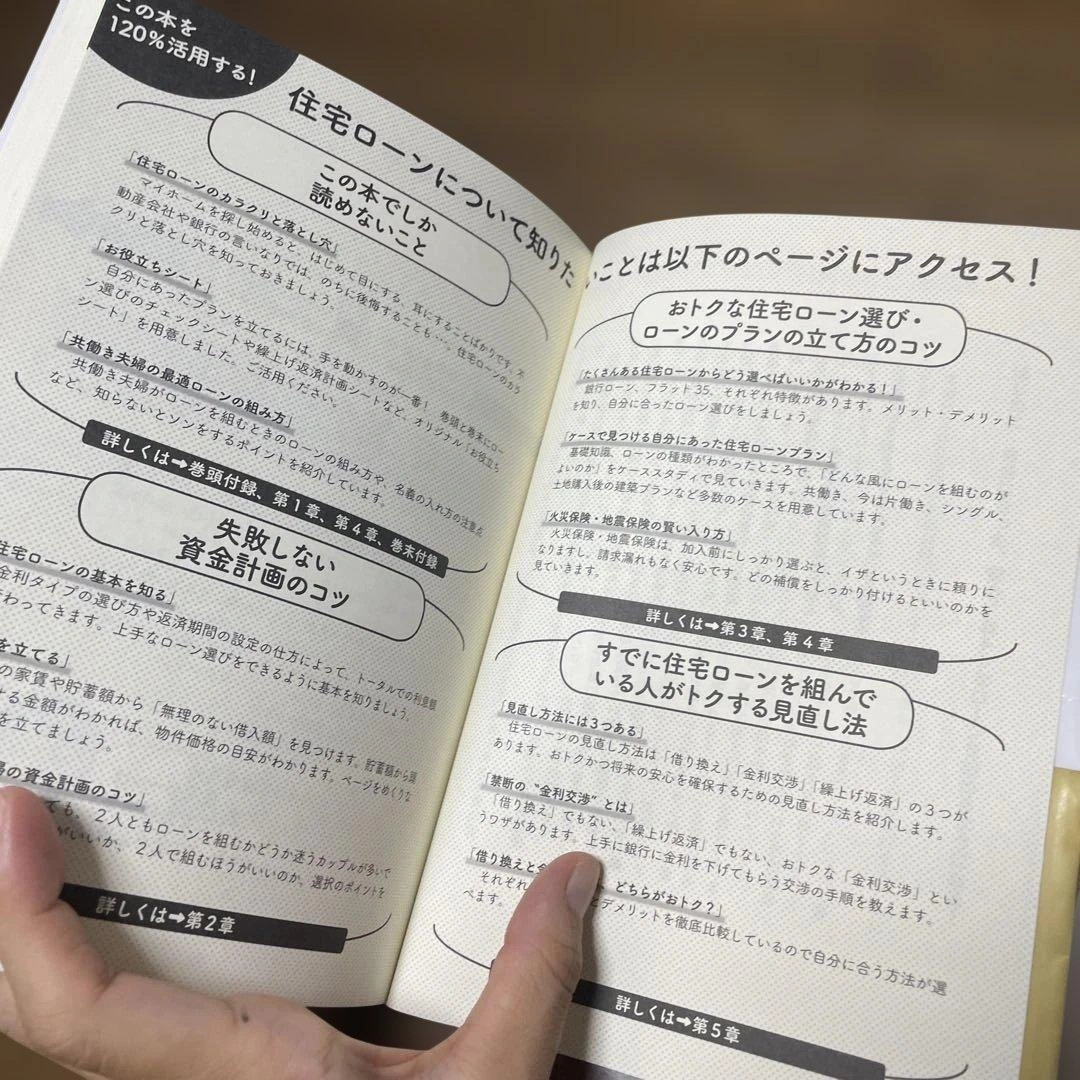 この本を
120%活用する!
住宅ローンについて知りた
この本でしか
読めないこと
「住宅ローンのカラクリと落とし穴」
マイホームを探し始めると、はじめて目にする、耳にすることばかりです。不
動産会社や銀行の言いなりでは、のちに後悔することも…。住宅ローンのカラ
クリと落とし穴を知っておきましょう。
「お役立ちシート」
自分にあったプランを立てるには、手を動かすのが一番! 巻頭と巻末にロー
ン選びのチェックシートや繰上げ返済計画シートなど、オリジナル「お役立ち
シート」を用意しました。ご活用ください。
「共働き夫婦の最適ローンの組み方」
共働き夫婦がローンを組むときのローンの組み方や、名義の入れ方の注意点
など、知らないとソンをするポイントを紹介しています。
詳しくは➡巻頭付録、第1章、第4章、巻末付録
失敗しない
資金計画のコツ
住宅ローンの基本を知る」
金利タイプの選び方や返済期間の設定の仕方によって、トータルでの利息額
わってきます。上手なローン選びをできるように基本を知りましょう。
を立てる」
の家賃や貯蓄額から「無理のない借入額」を見つけます。貯蓄額から頭
る金額がわかれば、物件価格の目安がわかります。ページをめくりな
を立てましょう。
の資金計画のコツ」
ても、2人ともローンを組むかどうか迷うカップルが多いで
がいいか、2人で組むほうがいいのか。選択のポイントを
詳しくは➡第2章
いことは以下のページにアクセス!
おトクな住宅ローン選び・
ローンのプランの立て方のコツ
「たくさんある住宅ローンからどう選べばいいかがわかる!」
銀行ローン、フラット35、それぞれ特徴があります。メリット・デメリット
を知り、自分に合ったローン選びをしましょう。
「ケースで見つける自分にあった住宅ローンプラン」
基礎知識、ローンの種類がわかったところで、「どんな風にローンを組むのが
よいのか」をケーススタディで見ていきます。共働き、今は片働き、シングル、
土地購入後の建築プランなど多数のケースを用意しています。
「火災保険・地震保険の賢い入り方」
火災保険・地震保険は、加入前にしっかり選ぶと、イザというときに頼りに
なりますし、請求漏れもなく安心です。どの補償をしっかり付けるといいのかを
見ていきます。
詳しくは➡第3章、第4章
すでに住宅ローンを組んで
いる人がトクする見直し法
「見直し方法には3つある」
住宅ローンの見直し方法は「借り換え」「金利交渉」「繰上げ返済」の3つが
あります。おトクかつ将来の安心を確保するための見直し方法を紹介します。
「禁断の“金利交渉”とは」
「借り換え」でもない、「繰上げ返済」でもない、おトクな「金利交渉」とい
うワザがあります。上手に銀行に金利を下げてもらう交渉の手順を教えます。
「借り換えと金 、どちらがおトク?」
それぞれ とデメリットを徹底比較しているので自分に合う方法が選
べます。
詳しくは➡第5章